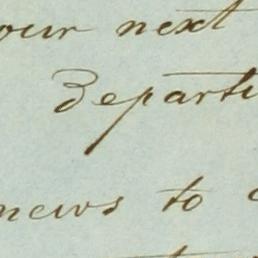 our next
Departi
news to